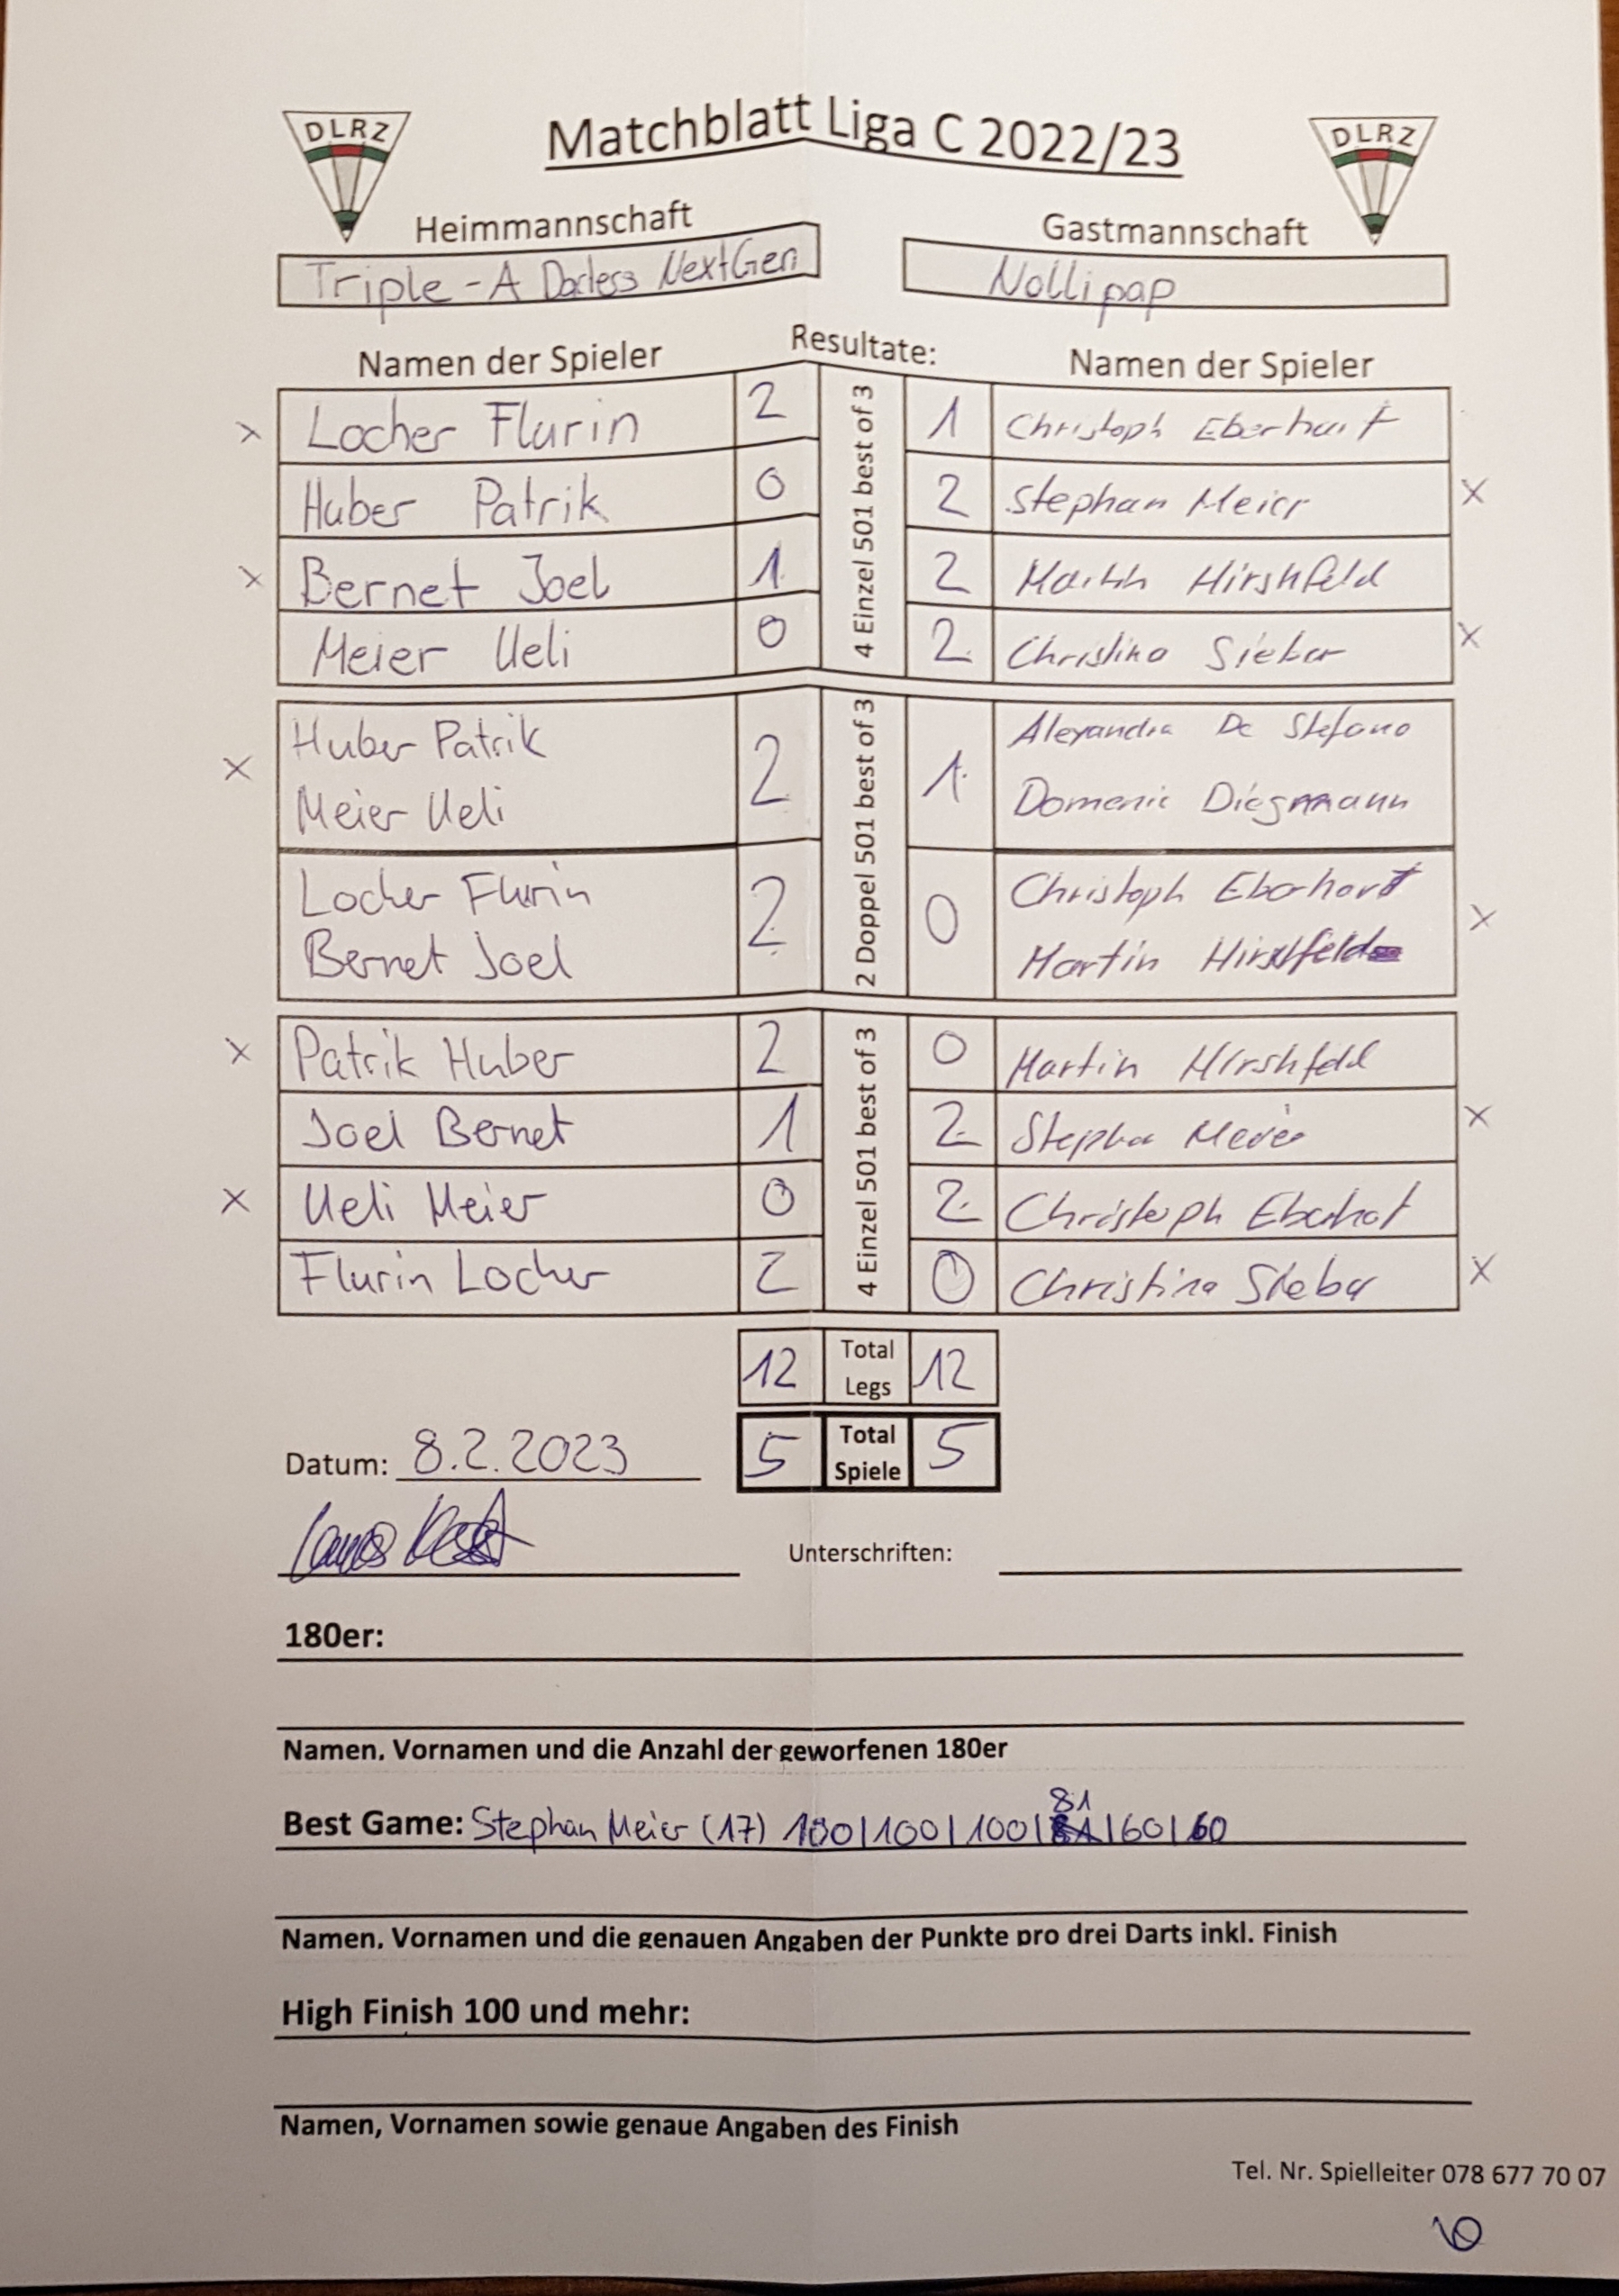 DLRZ Matchblatt Liga C 2022/23 DLRZ
Heimmannschaft Gastmannschaft
Triple-A Darters NextGen Nollipap
Namen der Spieler Resultate: Namen der Spieler
4 Einzel 501 best of 3
x Locher Flurin 2 1 Christoph Eberhart
Huber Patrik 0 2 Stephan Meier x
x Bernet Joel 1 2 Martin Hirshfeld
Meier Ueli 0 2 Christina Sieber x
2 Doppel 501 best of 3
Huber Patrik Alexandra De Stefano
x 2 1
Meier Ueli Domenic Diegmann
Locher Flurin Christoph Eberhart
2 0 x
Bernet Joel Martin Hirshfeld
4 Einzel 501 best of 3
x Patrik Huber 2 0 Martin Hirshfeld
Joel Bernet 1 2 Stephan Meier x
x Ueli Meier 0 2 Christoph Eberhart
Flurin Locher 2 0 Christina Sieber x
12 Total Legs 12
5 Total Spiele 5
Datum: 8.2.2023
Unterschriften:
180er:
Namen, Vornamen und die Anzahl der geworfenen 180er
81
Best Game: Stephan Meier (17) 100|100|100|81|60|60
Namen, Vornamen und die genauen Angaben der Punkte pro drei Darts inkl. Finish
High Finish 100 und mehr:
Namen, Vornamen sowie genaue Angaben des Finish
Tel. Nr. Spielleiter 078 677 70 07